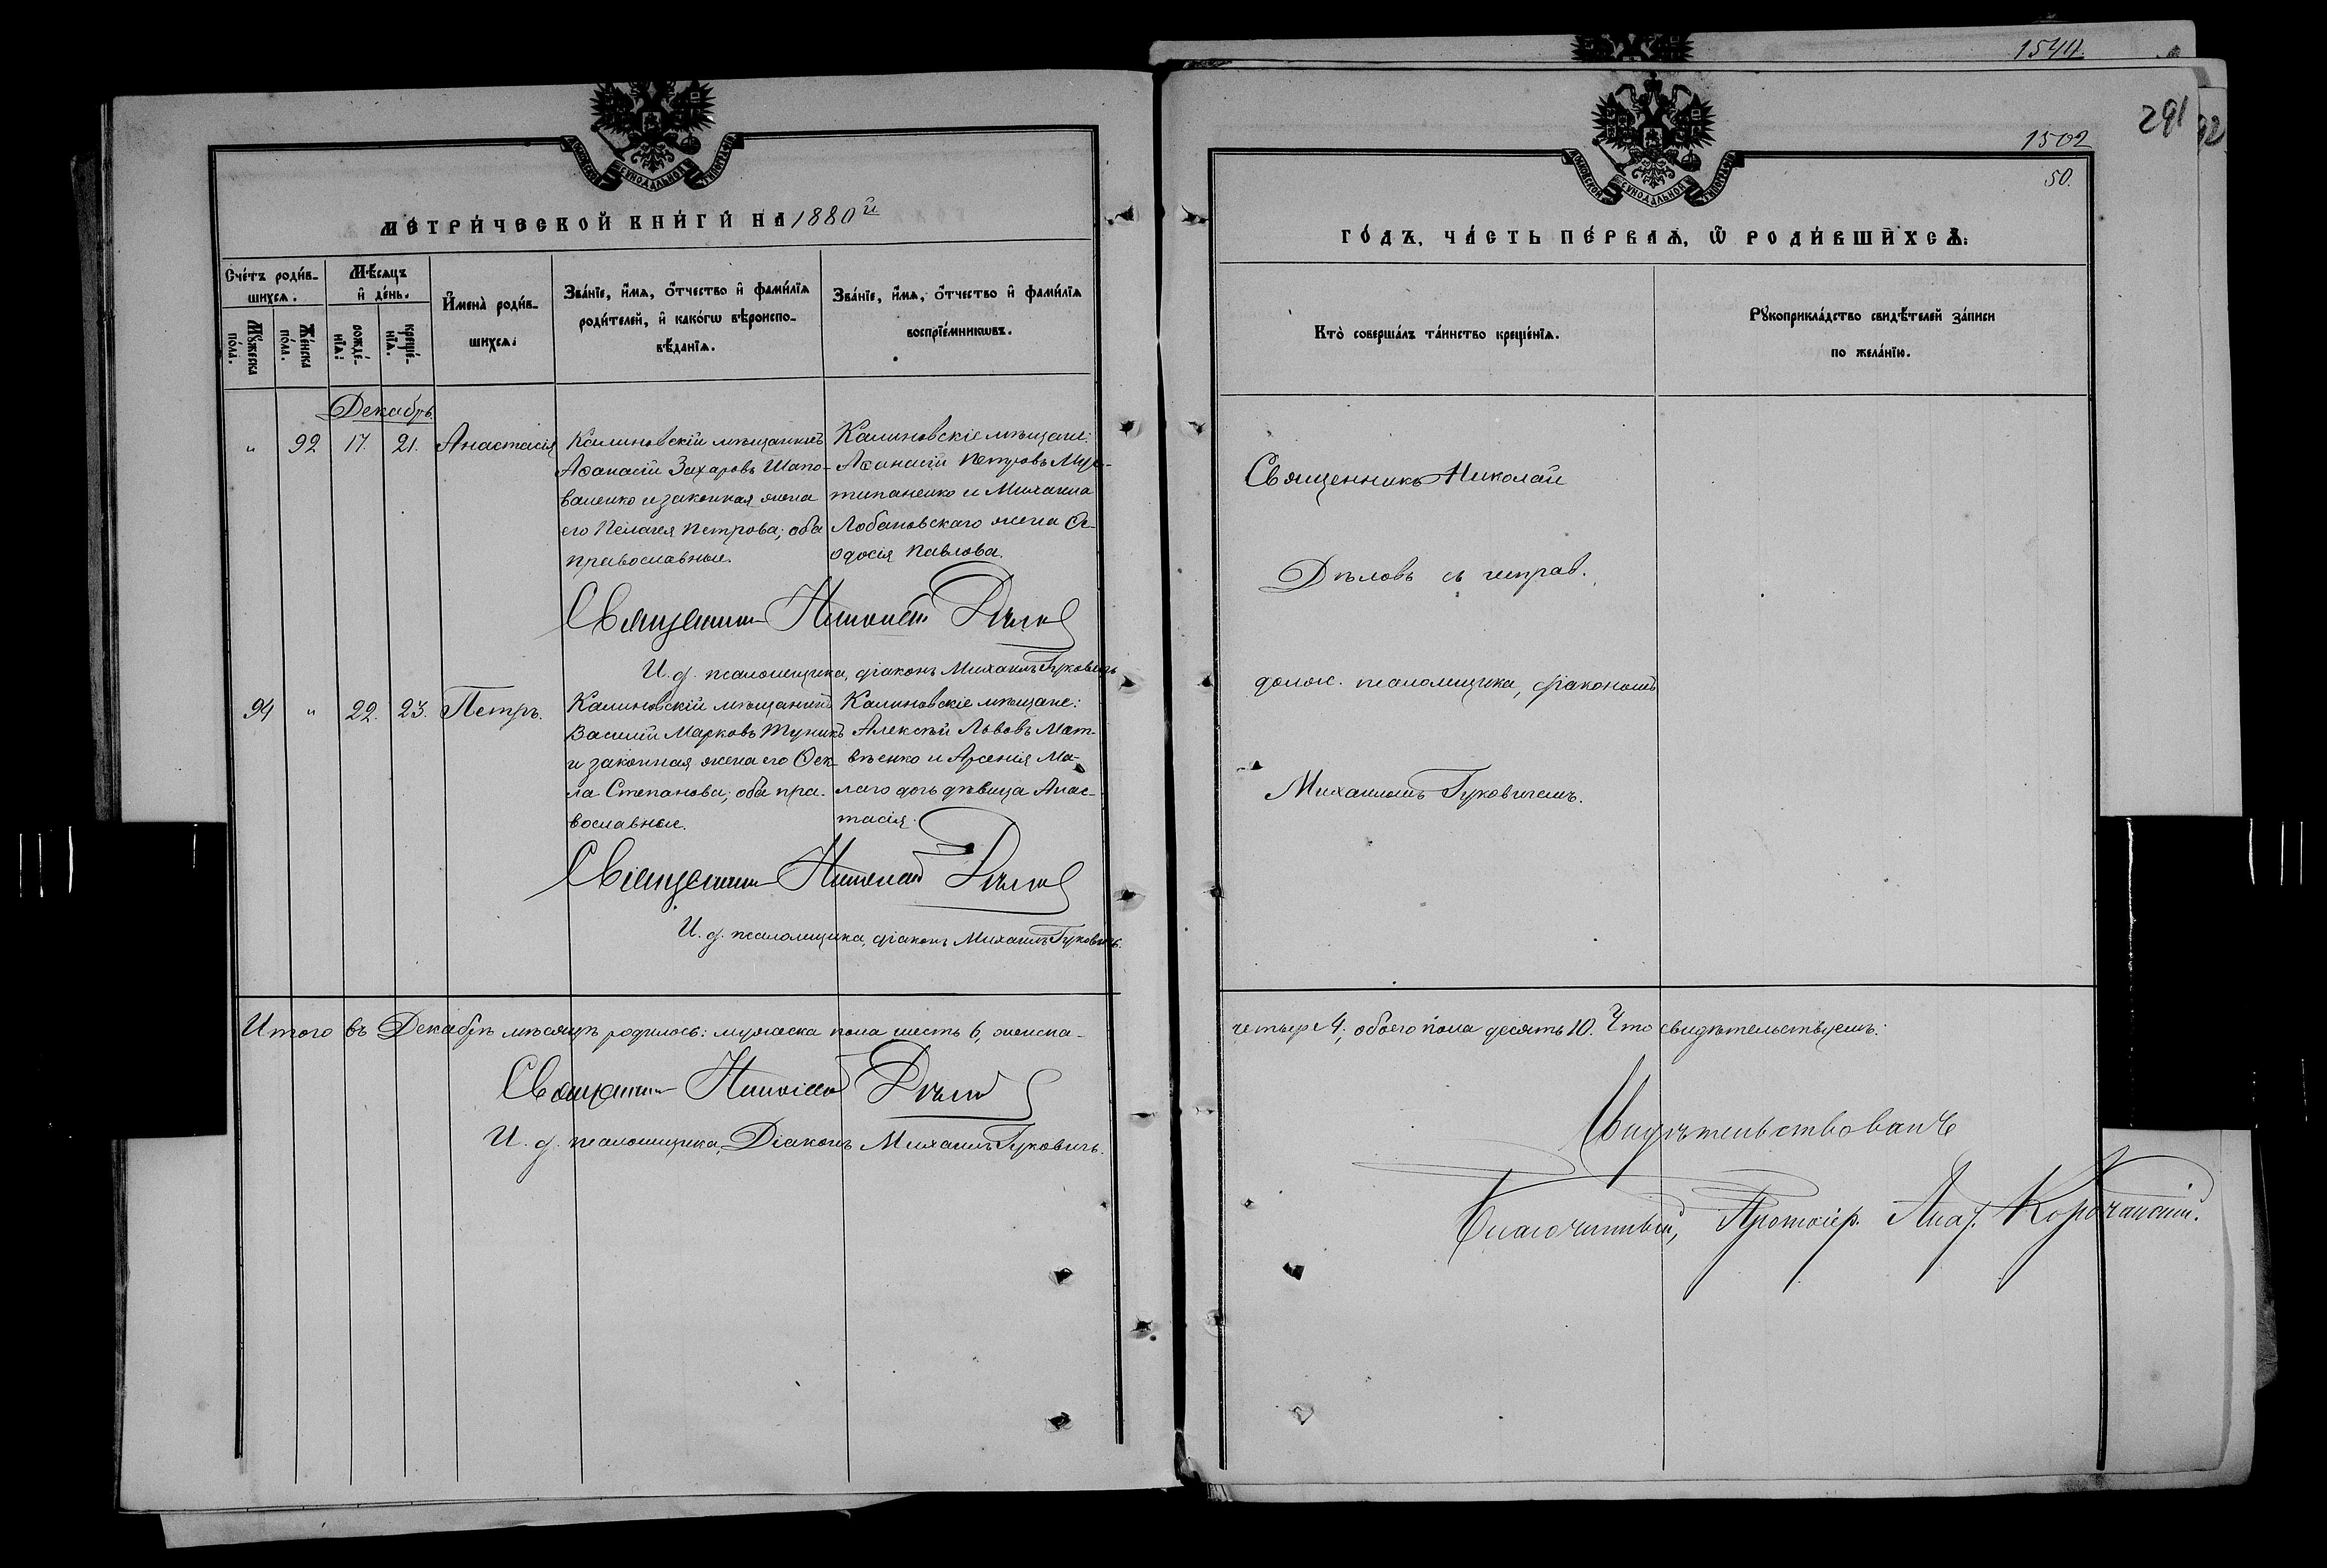 1544.
291
92
1502
50.
МОСКОВСКОЙ СУНОДАЛЬНОЙ ТИПОГРАФІИ
МЕТРИ́ЧЕСКОЙ КНИ́ГИ НА 1880й
Сче́тъ роди́вшихсѧ.
Мѣ́сѧцъ и҆ де́нь.
Мꙋ́жеска по́ла.
Же́нска по́ла.
рожде́нїѧ:
креще́нїѧ.
И҆мена̀ роди́вшихсѧ:
Зва́нїе, и҆́мѧ, ѻ҆́тчество и҆ фами́лїѧ
роди́телей, и҆ како́гѡ вѣроиспо-
вѣ́данїѧ.
Зва́нїе, и҆́мѧ, ѻ҆́тчество и҆ фами́лїѧ
воспрїе́мникѡвъ.
Декабрь
" 92 17. 21. Анастасія
Калиновскій мѣщанинъ
Аѳанасій Захаровъ Шапо-
валенко и законная жена
его Пелагея Петрова; оба
православные.
Калиновскіе мѣщане:
Аѳанасій Петровъ
и Михаила
Лобановскаго жена Ѳе-
одосія Павлова.
Священникъ Николай Дѣловъ
И. д. псаломщика, діаконъ Михаилъ Гуковичъ
94 " 22. 23. Петръ.
Калиновскій мѣщанинъ
Василій Марковъ Туникъ
и законная жена его Ѳек-
ла Степанова; оба пра-
вославные.
Калиновскіе мѣщане:
Алексѣй Львовъ Мат-
вѣенко и Арсенія Ма-
лаго дочь дѣвица Анас-
тасія.
Священникъ Николай Дѣловъ
И. д. псаломщика, діаконъ Михаилъ Гуковичъ.
Итого въ Декабрѣ мѣсяцѣ родилось: мужеска пола шесть 6, женска-
Священникъ Николай Дѣловъ
И. д. псаломщика, Діаконъ Михаилъ Гуковичъ.
МОСКОВСКОЙ СУНОДАЛЬНОЙ ТИПОГРАФІИ
ГО́ДЪ, ЧА́СТЬ ПЕ́РВАѦ, Ѿ РОДИ́ВШИХСѦ:
Кто̀ соверша́лъ та́инство креще́нїѧ.
Рꙋкоприкла́дство свидѣ́телей за́писи
по жела́нїю.
Священникъ Николай
Дѣловъ съ исправ.
долж. псаломщика, діакономъ
Михаиломъ Гуковичемъ.
четыре 4; обоего пола десять 10. Что свидѣтельствуемъ:
Свидѣтельствовалъ
Благочинный, Протоіер. Корочанскій.